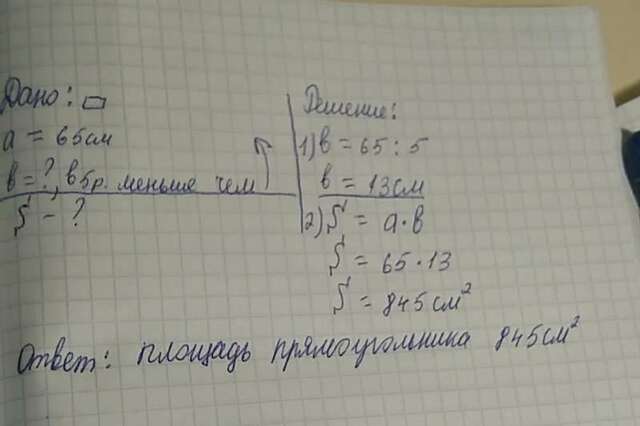 Дано: ▭
a = 65см
в = ?, в 5р. меньше чем
S - ?
Решение:
1) в = 65 : 5
в = 13см
2) S = a · в
S = 65 · 13
S = 845 см²
Ответ: площадь прямоугольника 845см²